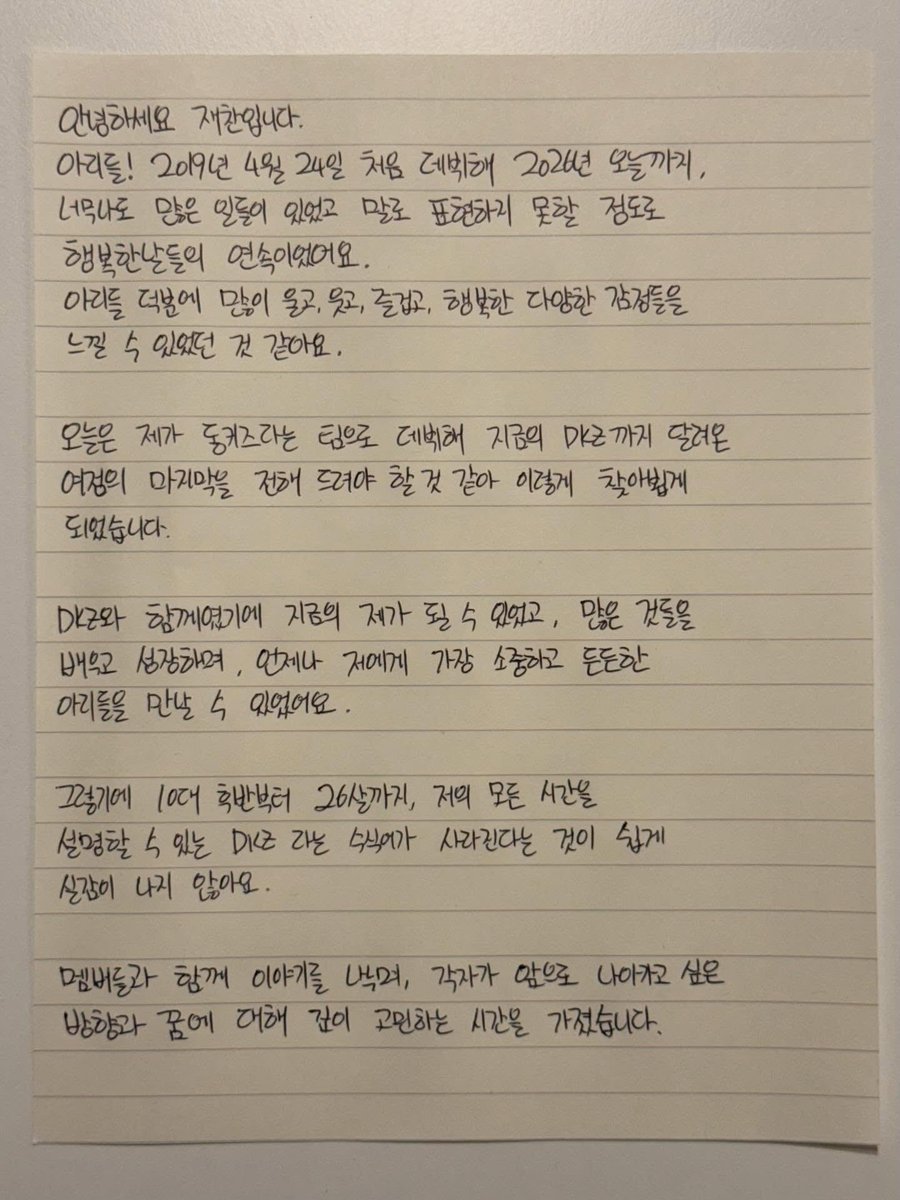 안녕하세요 재찬입니다.
아리들! 2019년 4월 24일 처음 데뷔해 2026년 오늘까지,
너무나도 많은 일들이 있었고 말로 표현하지 못할 정도로
행복한날들의 연속이었어요.
아리들 덕분에 많이 울고, 웃고, 즐겁고, 행복한 다양한 감정들을
느낄 수 있었던 것 같아요.
오늘은 제가 동키즈라는 팀으로 데뷔해 지금의 DKZ까지 달려온
여정의 마지막을 전해 드려야 할 것 같아 이렇게 찾아뵙게
되었습니다.
DKZ와 함께였기에 지금의 제가 될 수 있었고, 많은 것들을
배우고 성장하며, 언제나 저에게 가장 소중하고 든든한
아리들을 만날 수 있었어요.
그렇기에 10대 후반부터 26살까지, 저의 모든 시간을
설명할 수 있는 DKZ 라는 수식어가 사라진다는 것이 쉽게
실감이 나지 않아요.
멤버들과 함께 이야기를 나누며, 각자가 앞으로 나아가고 싶은
방향과 꿈에 대해 깊이 고민하는 시간을 가졌습니다.